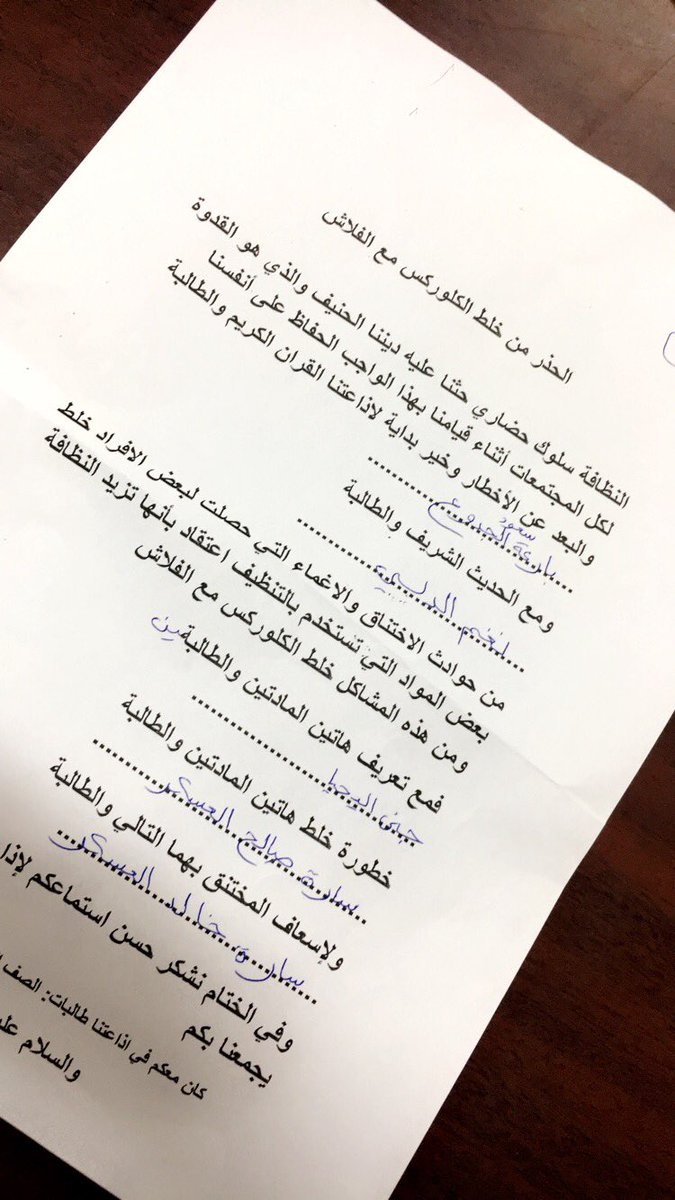 الحذر من خلط الكلوركس مع الفلاش
النظافة سلوك حضاري حثنا عليه ديننا الحنيف والذي هو القدوة
لكل المجتمعات أثناء قيامنا بهذا الواجب الحفاظ على أنفسنا
والبعد عن الأخطار وخير بداية لاذاعتنا القران الكريم والطالبة
سعود
ومع الحديث الشريف والطالبة
من حوادث الاختناق والاغماء التي حصلت لبعض الافراد خلط
بعض المواد التي تستخدم بالتنظيف اعتقاد بأنها تزيد النظافة
ومن هذه المشاكل خلط الكلوركس مع الفلاش
فمع تعريف هاتين المادتين والطالبةين
جنى اليحيا
خطورة خلط هاتين المادتين والطالبة
سارة صالح العسكر
ولإسعاف المختنق بهما التالي والطالبة
سارة خالد العسكر
وفي الختام نشكر حسن استماعكم لإذا
يجمعنا بكم
كان معكم في اذاعتنا طالبات: الصف ا
والسلام علي